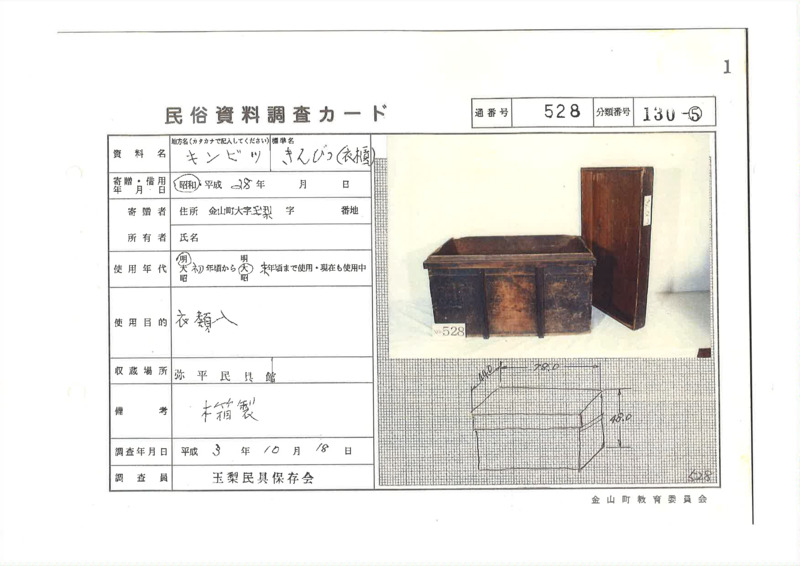 1
民俗資料調査カード
通番号 528 分類番号 130-⑤
資料名 地方名(カタカナで記入してください) キンビツ 標準名 きんびつ(衣櫃)
寄贈・借用年月日 昭和・平成 28年 月 日
寄贈者 住所 金山町大字玉梨 字 番地
所有者 氏名
使用年代 明大昭 初年頃から 明大昭 末年頃まで使用・現在も使用中
使用目的 衣類入
収蔵場所 弥平民具館
備考 木箱製
調査年月日 平成 3年 10月 18日
調査員 玉梨民具保存会
528
44.0
78.0
48.0
528
金山町教育委員会